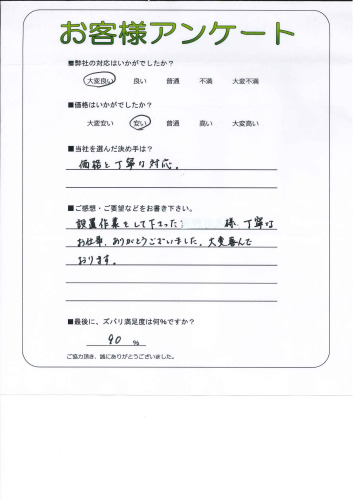 お客様アンケート
■弊社の対応はいかがでしたか?
大変良い 良い 普通 不満 大変不満
■価格はいかがでしたか?
大変安い 安い 普通 高い 大変高い
■当社を選んだ決め手は?
価格と丁寧な対応。
■ご感想・ご要望などをお書き下さい。
設置作業をして下さった 様、丁寧な
お仕事、ありがとうございました。大変喜んで
おります。
■最後に、ズバリ満足度は何%ですか?
90 %
ご協力頂き、誠にありがとうございました。